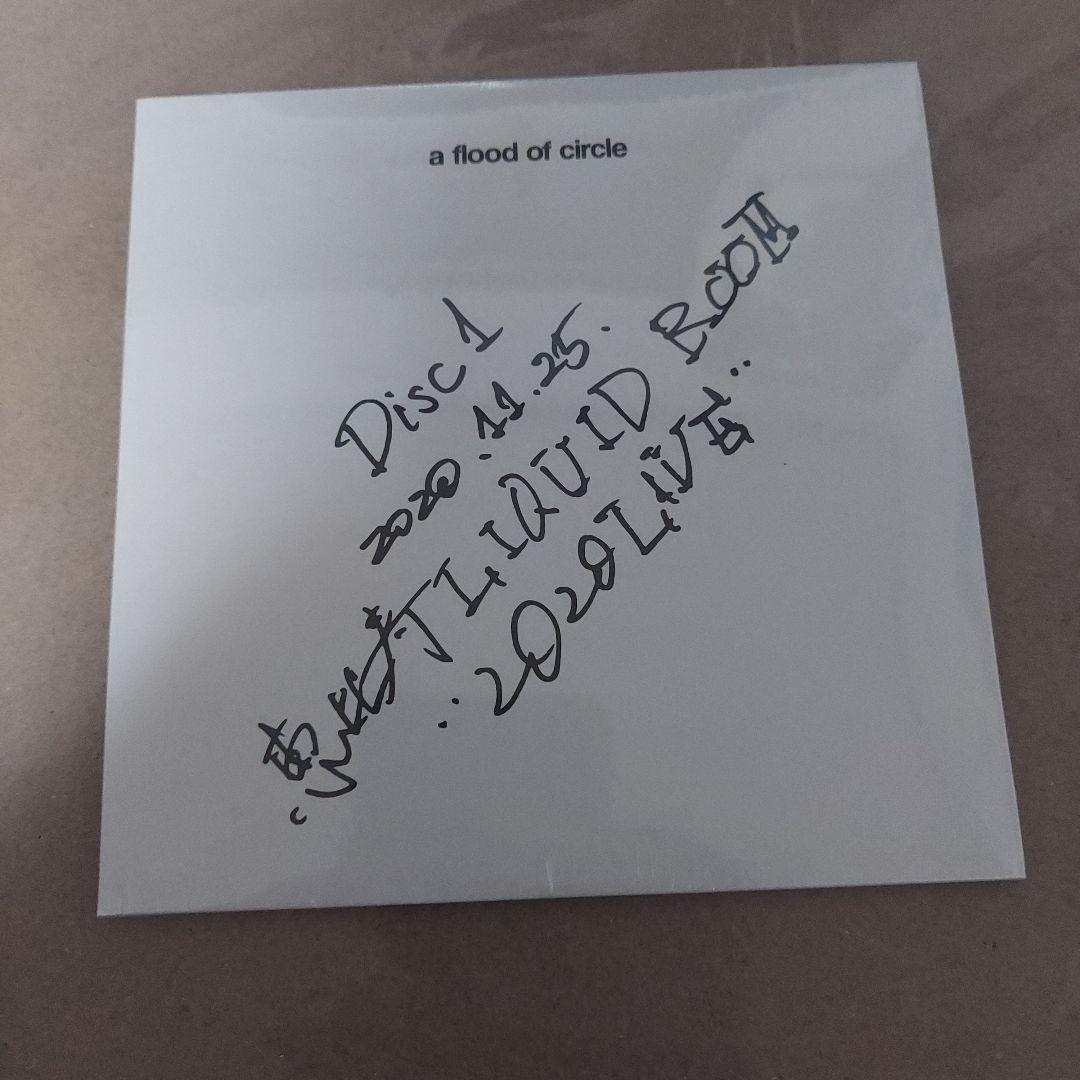 a flood of circle
Disc 1
2020.11.25.
恵比寿 LIQUID ROOM
2020 LIVE